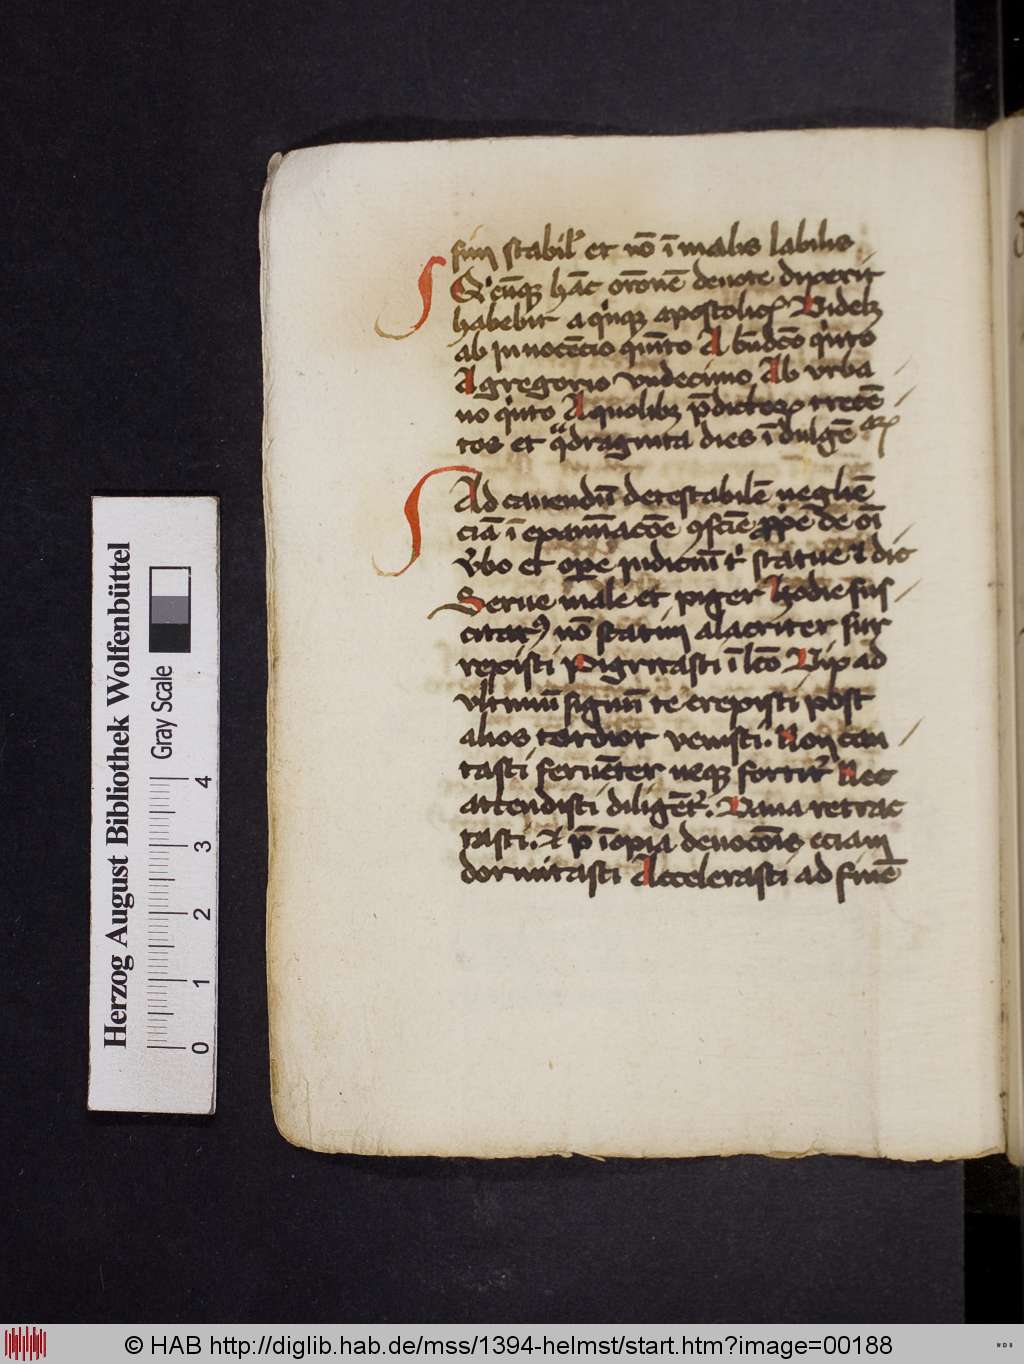 sūn stabilʼ et nō ī malis labilis
Qʼcūqꝫ hāc orōnē deuote dixerit
habebit a qʼnqꝫ apostolicꝭ Videlꝫ
ab innocēcio quīto A bn̄dcō qʼnto
A gregorio vndecimo Ab vrba
no qʼnto A quolibꝫ p̄dictoꝝ trecē
tos et qᵃdraginta dies īdulgē aꝝ
Ad cauendū detestabilē negliē
ciā ī exam̄acōe ꝯsciē de oī
vʼbo et oꝑe iudiciū tʼ statue & dic
Serue male et piger hodie sus
citatꝰ nō statim alacriter sur
rexisti Pigritasti ī lcō Vix ad
vltimū signū te erexisti post
alios tardior venisti. Non can
tasti feruēter neqꝫ fortitʼ Nec
attendisti diligētʼ. Vana retrac
tasti. & p̄ īopia deuocōis eciam
dormitasti Accelerasti ad finē
Herzog August Bibliothek Wolfenbüttel
Gray Scale
0 1 2 3 4
© HAB http://diglib.hab.de/mss/1394-helmst/start.htm?image=00188